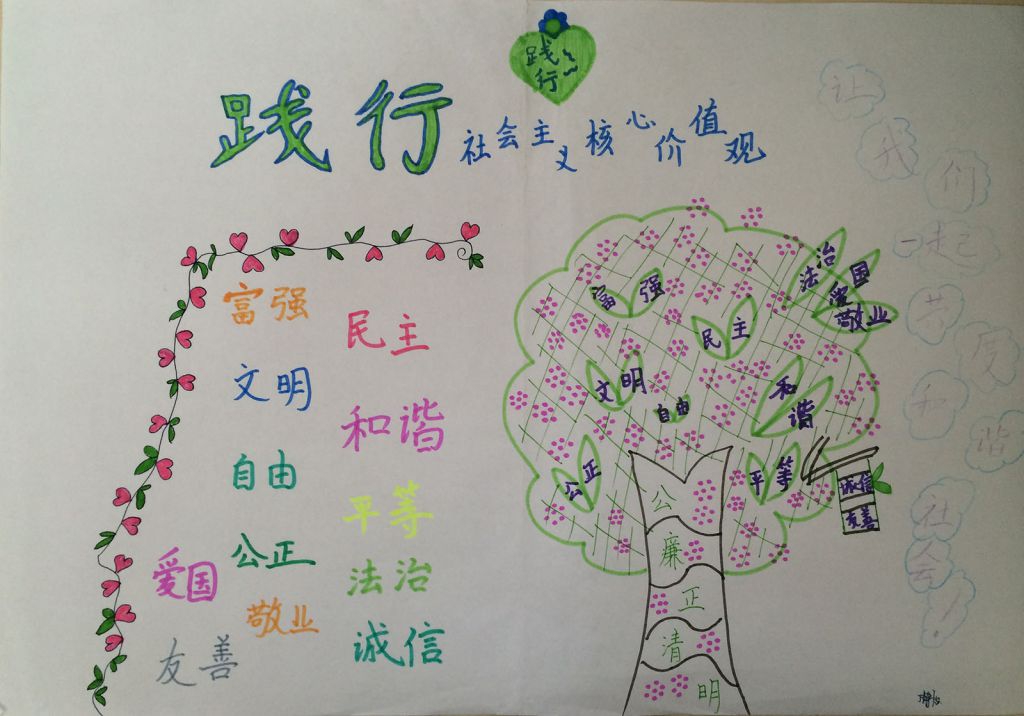 践行
践行
社会主义核心价值观
富强
民主
文明
和谐
自由
平等
公正
法治
爱国
敬业
诚信
友善
富强
民主
文明
自由
和谐
公正
平等
法治
爱国
敬业
诚信
友善
公
廉
正
清
明
让我们一起共度和谐社会！